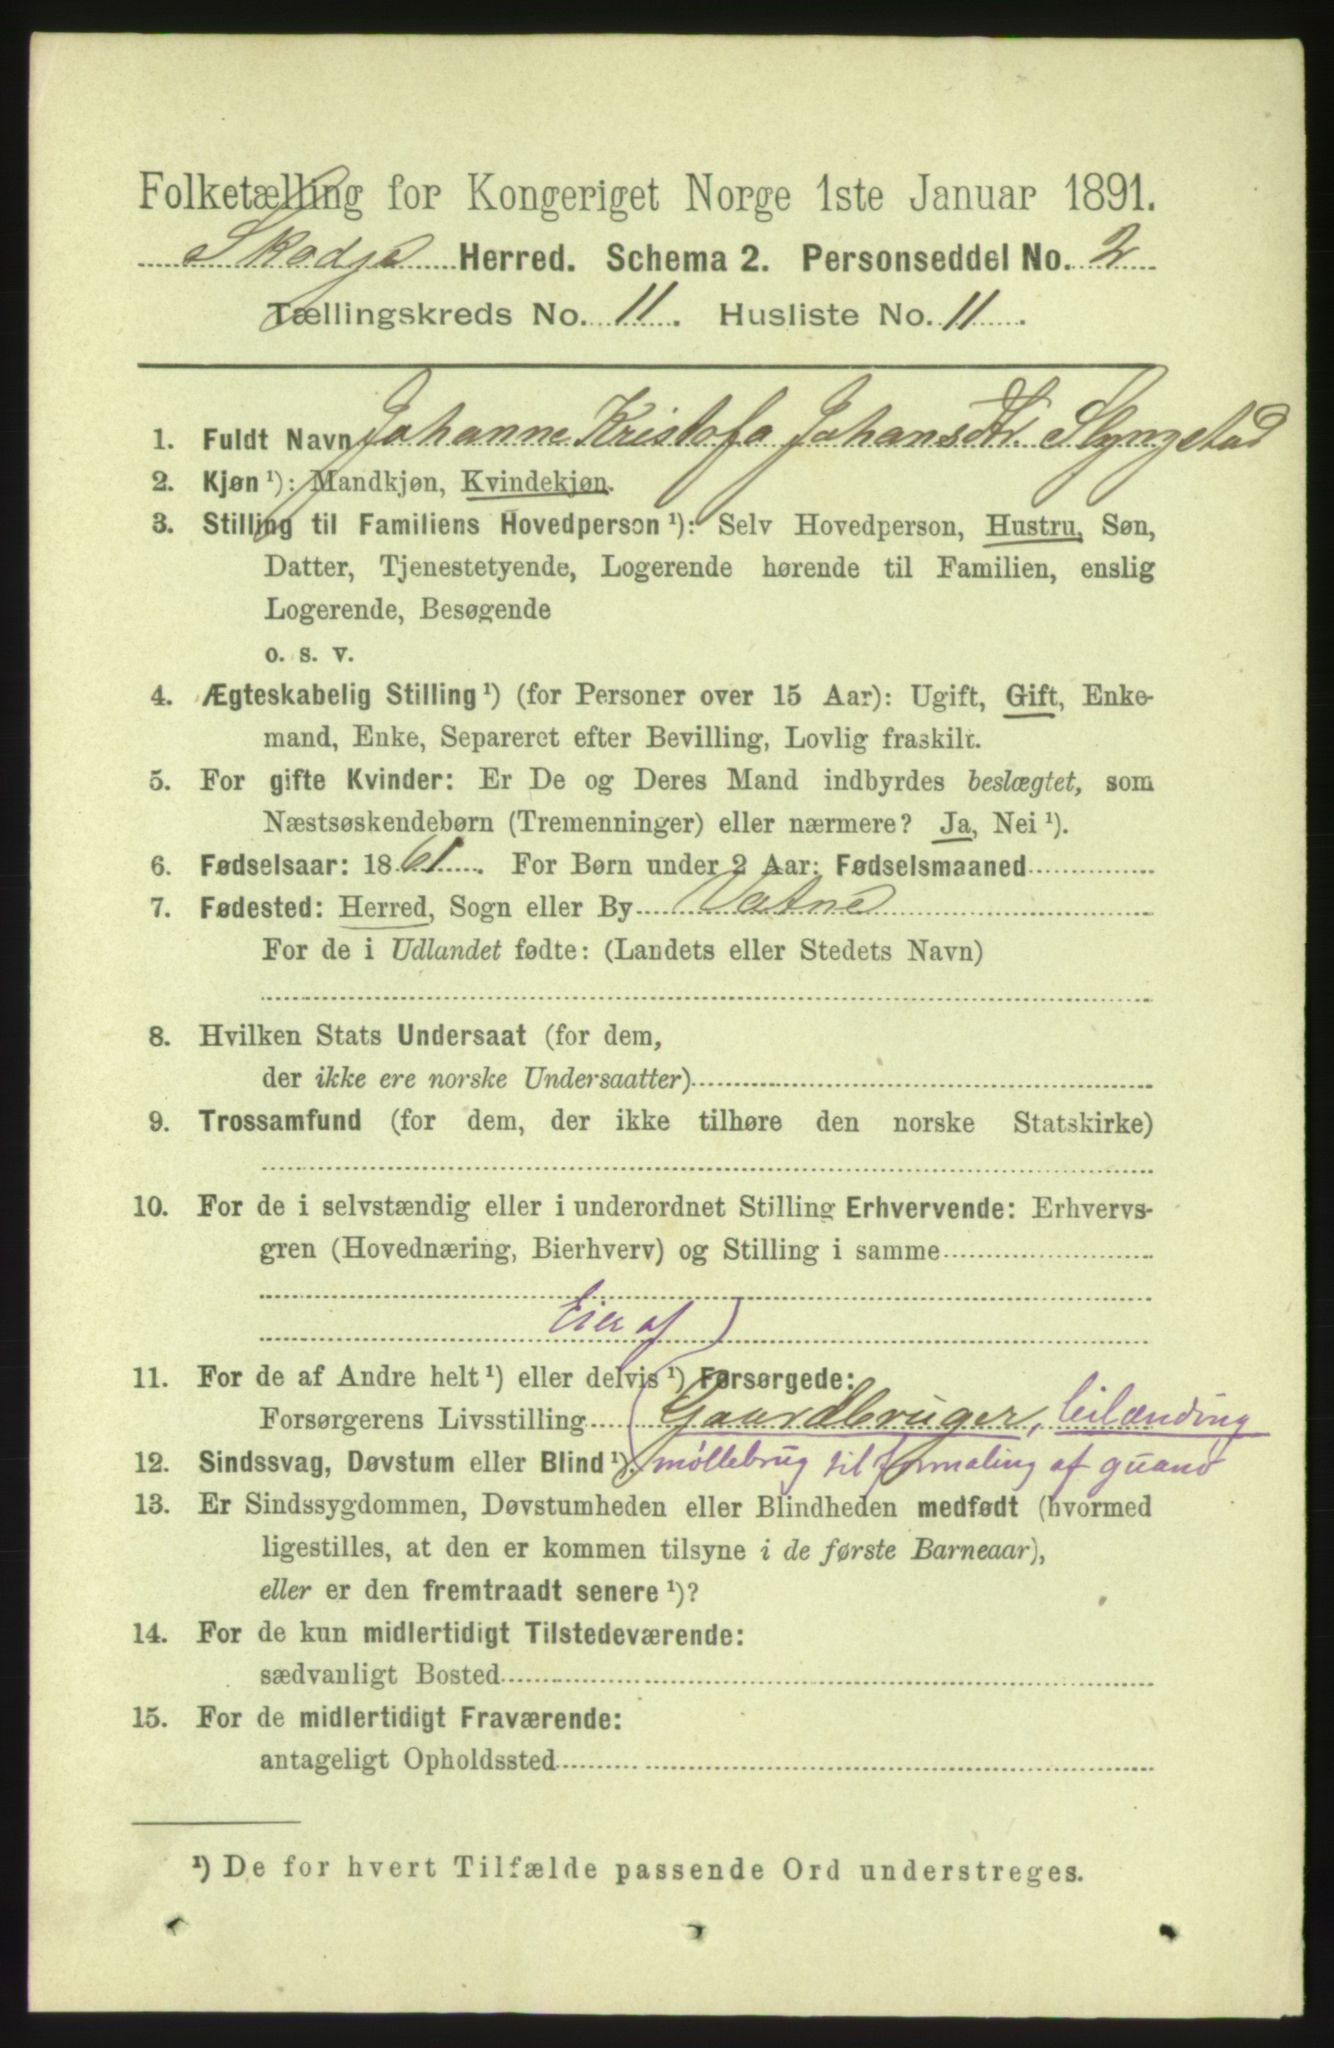 Folketælling for Kongeriget Norge 1ste Januar 1891.
Skodje Herred. Schema 2. Personseddel No. 2
Tællingskreds No. 11. Husliste No. 11.
1. Fuldt Navn Johanne Kristofa Johansdtr. Slyngstad
2. Kjøn ¹): Mandkjøn, Kvindekjøn.
3. Stilling til Familiens Hovedperson ¹): Selv Hovedperson, Hustru, Søn,
Datter, Tjenestetyende, Logerende hørende til Familien, enslig
Logerende, Besøgende
o. s. v.
4. Ægteskabelig Stilling ¹) (for Personer over 15 Aar): Ugift, Gift, Enke-
mand, Enke, Separeret efter Bevilling, Lovlig fraskilt.
5. For gifte Kvinder: Er De og Deres Mand indbyrdes beslægtet, som
Næstsøskendebørn (Tremenninger) eller nærmere? Ja, Nei ¹).
6. Fødselsaar: 1861. For Børn under 2 Aar: Fødselsmaaned
7. Fødested: Herred, Sogn eller By Vatne
For de i Udlandet fødte: (Landets eller Stedets Navn)
8. Hvilken Stats Undersaat (for dem,
der ikke ere norske Undersaatter)
9. Trossamfund (for dem, der ikke tilhøre den norske Statskirke)
10. For de i selvstændig eller i underordnet Stilling Erhvervende: Erhvervs-
gren (Hovednæring, Bierhverv) og Stilling i samme
Eier af
11. For de af Andre helt ¹) eller delvis ¹) Forsørgede:
Forsørgerens Livsstilling Gaardbruger, leilænding
12. Sindssvag, Døvstum eller Blind ¹). møllebrug til formaling af guano
13. Er Sindssygdommen, Døvstumheden eller Blindheden medfødt (hvormed
ligestilles, at den er kommen tilsyne i de første Barneaar),
eller er den fremtraadt senere ¹)?
14. For de kun midlertidigt Tilstedeværende:
sædvanligt Bosted
15. For de midlertidigt Fraværende:
antageligt Opholdssted
¹) De for hvert Tilfælde passende Ord understreges.